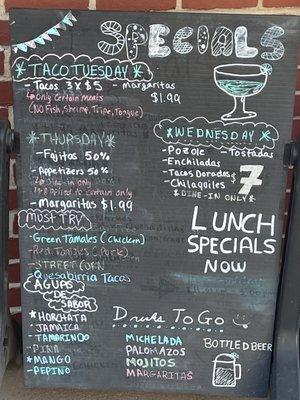 SPECIALS
*TACO TUESDAY*
- Tacos 3 x $5
- margaritas $1.99
Only Certain meats
(No Fish, Shrimp, Tripe, Tongue)
*THURSDAY*
- Fajitos 50%
- Appetizers 50%
in only
to certain only
- margaritas $1.99
*WEDNESDAY*
- Pozole - Tostadas
- Enchiladas
- Tacos Dorados
- Chilaquiles
$7
*DINE-IN ONLY*
MUST TRY
- Green Tamales (Chicken)
- Red Tamales (Pork)
- STREET CORN
- Quesabirria Tacos
LUNCH
SPECIALS
NOW
AGUAS
DE
SABOR
- HORCHATA
- JAMAICA
- TAMARINDO
- PINA
* MANGO
- PEPINO
Drinks To Go
MICHELADA
PALOMAZOS
MOJITOS
MARGARITAS
BOTTLED BEER